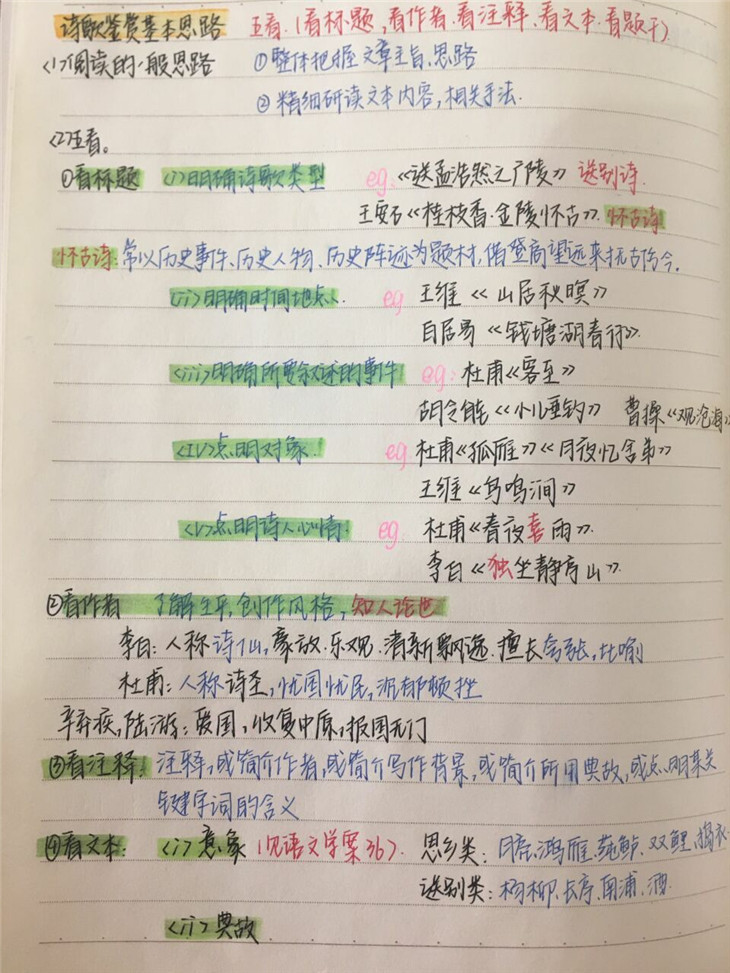 诗歌鉴赏基本思路 五看.(看标题,看作者.看注释.看文本.看题干)
<1>阅读的一般思路 ①整体把握文章主旨、思路
②精细研读文本内容,相关手法.
<2>五看。
①看标题 <i>明确诗歌类型 eg.《送孟浩然之广陵》 送别诗.
王安石《桂枝香·金陵怀古》. 怀古诗
怀古诗:常以历史事件、历史人物、历史陈迹为题材,借登高望远来抚古伤今.
<ii>明确时间地点. eg 王维《山居秋暝》
白居易《钱塘湖春行》.
<iii>明确所要叙述的事件 eg:杜甫《客至》
胡令能《小儿垂钓》 曹操《观沧海》
<iv>点明对象. eg.杜甫《孤雁》《月夜忆舍弟》
王维《鸟鸣涧》
<v>点明诗人心情. eg. 杜甫《春夜喜雨》.
李白《独坐敬亭山》.
②看作者 了解生平,创作风格,知人论世
李白:人称诗仙,豪放.乐观.清新飘逸.擅长夸张,比喻
杜甫:人称诗圣,忧国忧民,沉郁顿挫
辛弃疾,陆游:爱国,收复中原,报国无门
③看注释: 注释,或简介作者,或简介写作背景,或简介所用典故,或点明某关
键字词的含义
④看文本: <i>意象(见语文学案36). 思乡类:月亮.鸿雁.莼鲈.双鲤.捣衣
送别类:杨柳.长亭.南浦.酒.
<ii>典故